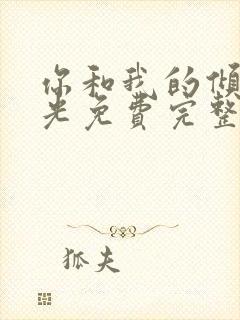 你和我的倾
光免費完整
狐夫